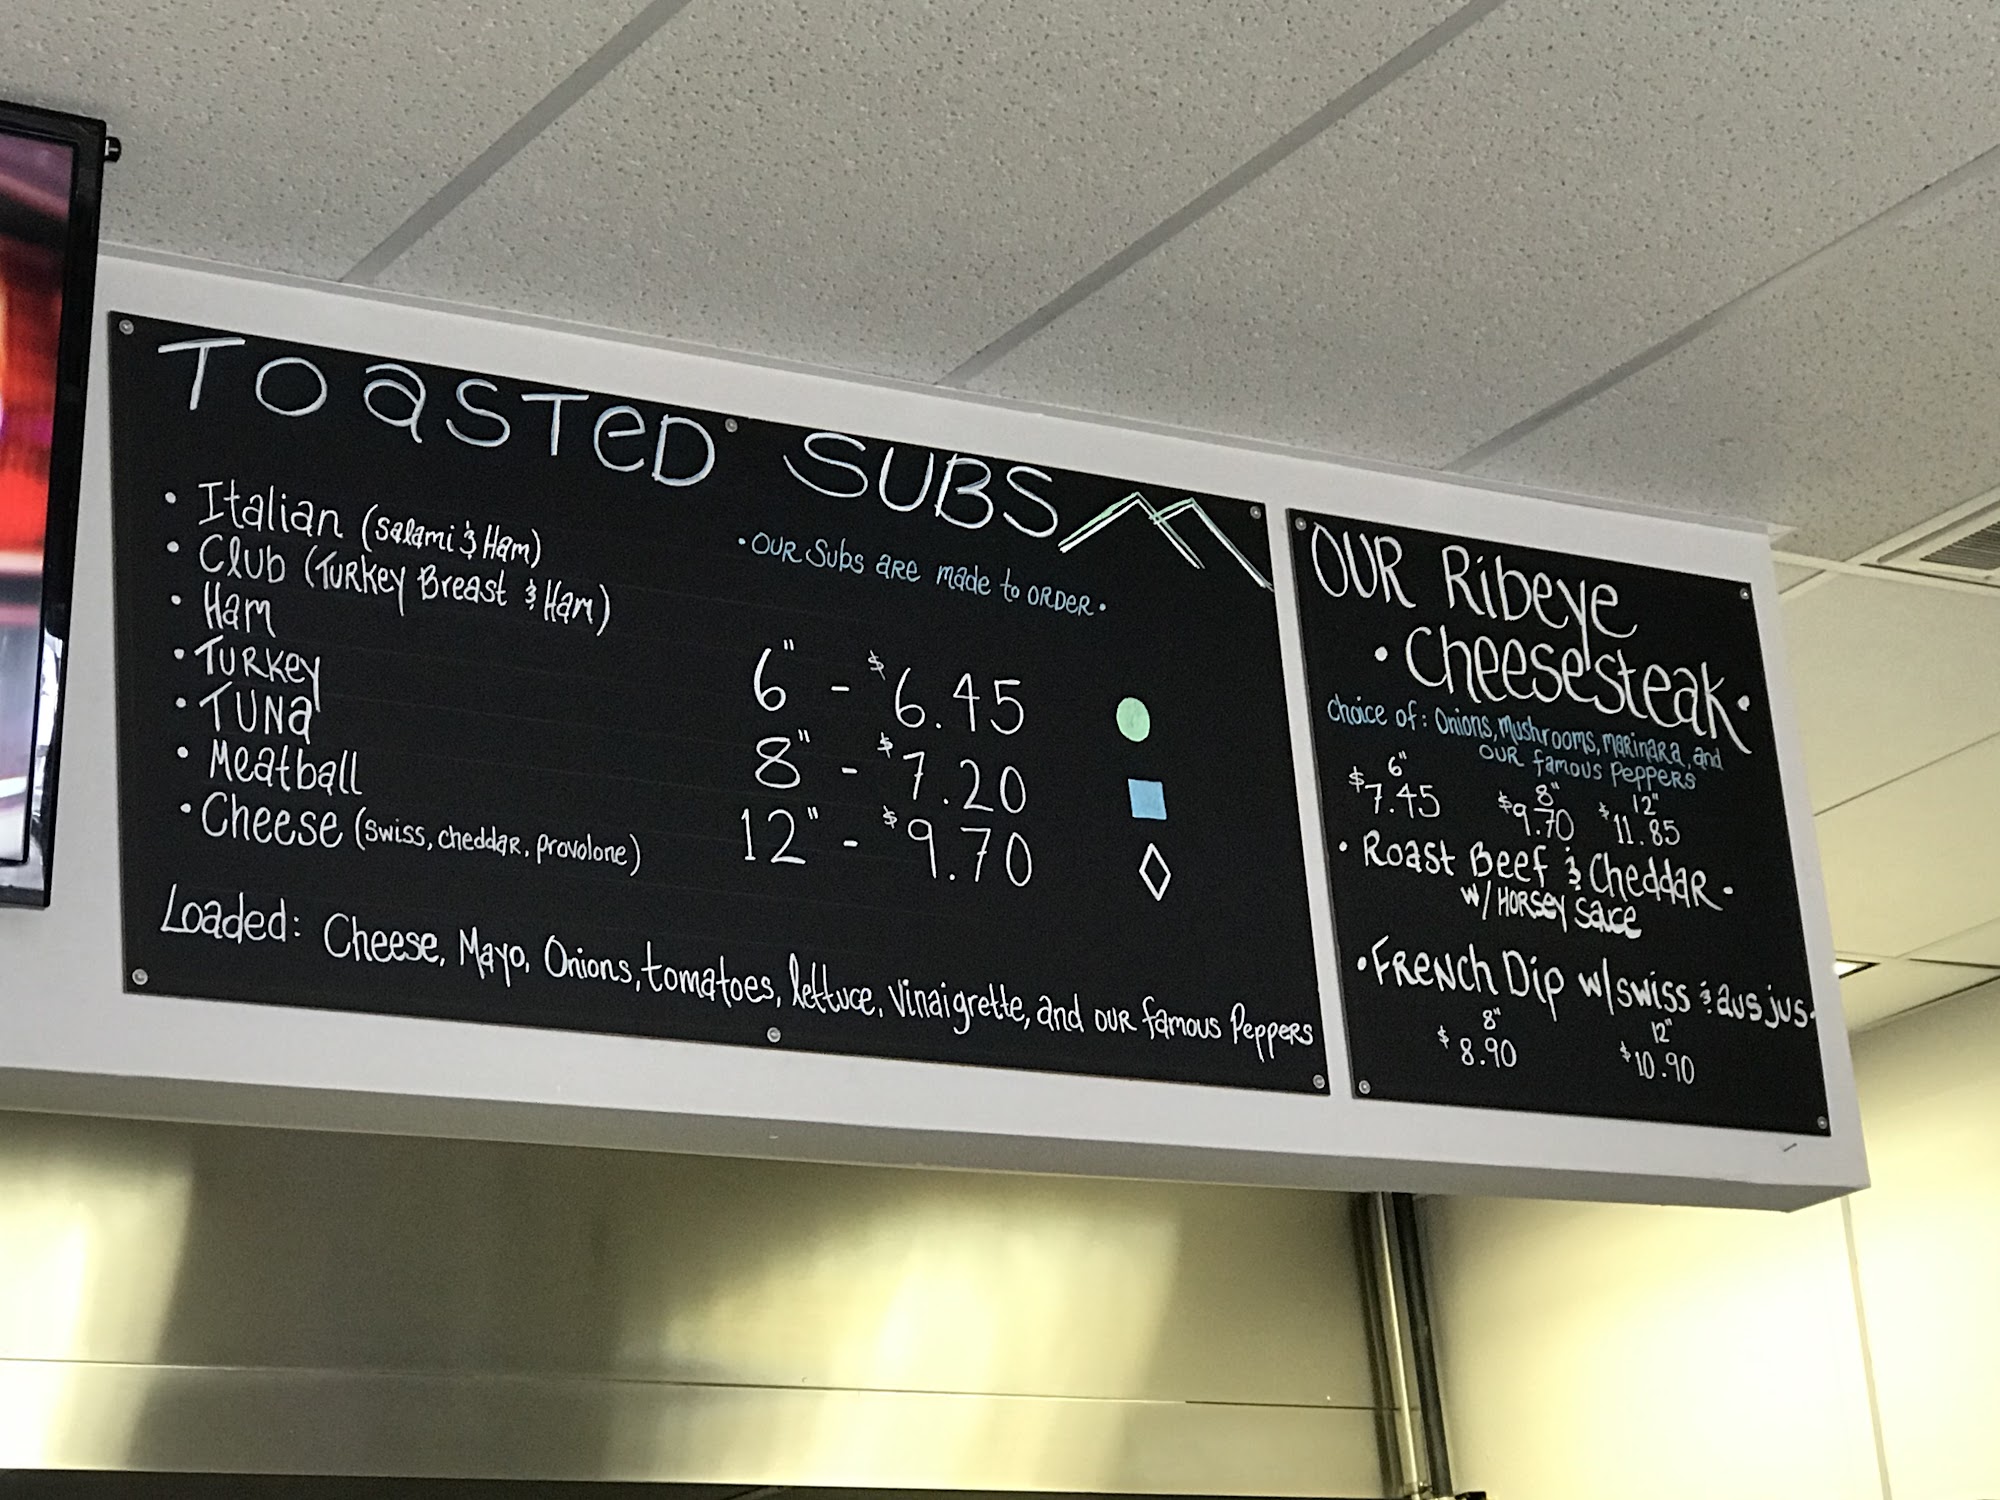 TOASTED SUBS
• Italian (Salami & Ham)
• Club (Turkey Breast & Ham)
• Ham
• TURKEY
• TUNA
• Meatball
• Cheese (swiss, cheddar, provolone)
• OUR Subs ARE made to ORDER •
6" - $6.45
8" - $7.20
12" - $9.70
Loaded: Cheese, Mayo, Onions, tomatoes, lettuce, Vinaigrette, and OUR famous Peppers
OUR Ribeye
• Cheesesteak •
Choice of: Onions, Mushrooms, Marinara, and
OUR famous Peppers
6" 8" 12"
$7.45 $9.70 $11.85
• Roast Beef & Cheddar •
w/ HORSEY Sauce
• FRENCH Dip w/ swiss & aus jus •
8" 12"
$8.90 $10.90